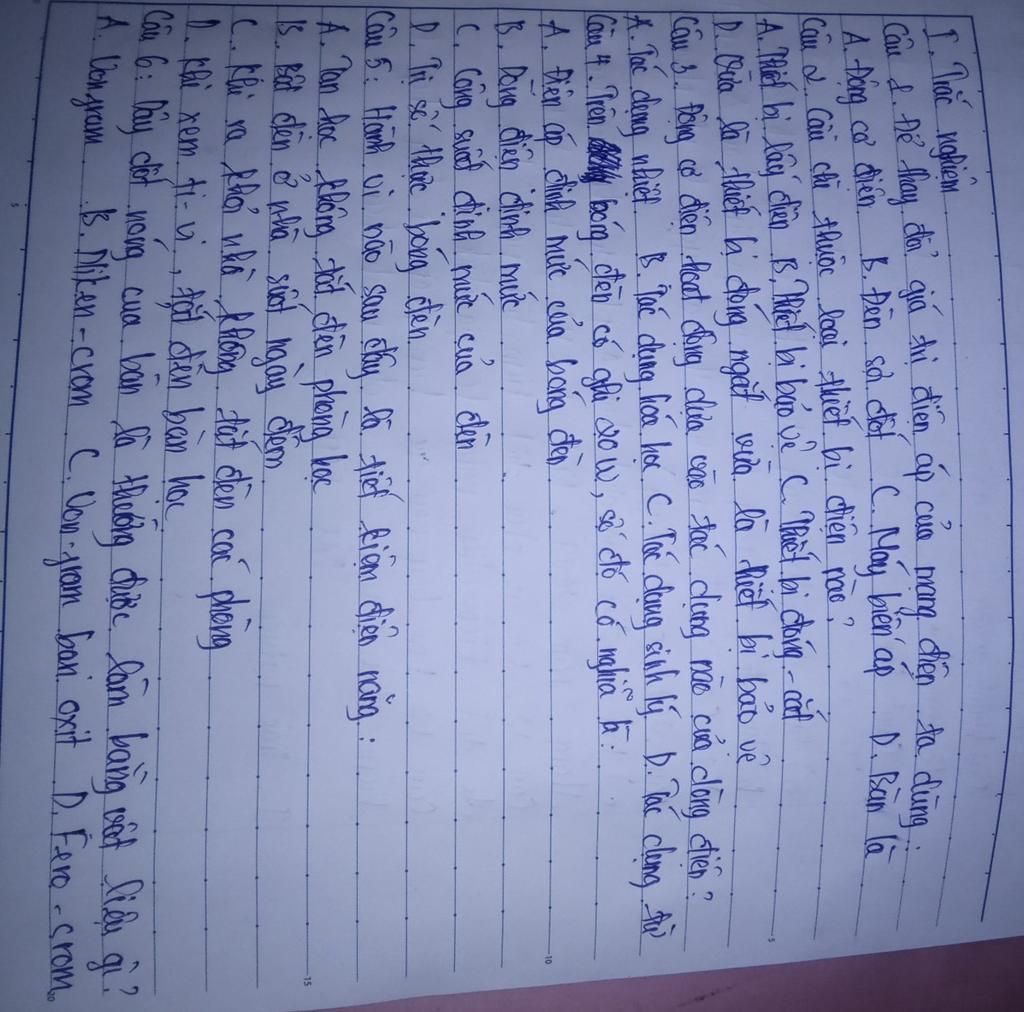 I. Trắc nghiệm
Câu 1. Để thay đổi giá trị điện áp của mạng điện ta dùng:
A. Động cơ điện B. Đèn sợi đốt C. Máy biến áp D. Bàn là
Câu 2. Cầu chì thuộc loại thiết bị điện nào?
A. Thiết bị lấy điện B. Thiết bị bảo vệ C. Thiết bị đóng - cắt
D. Vừa là thiết bị đóng ngắt vừa là thiết bị bảo vệ
Câu 3. Động cơ điện hoạt động dựa vào tác dụng nào của dòng điện?
A. Tác dụng nhiệt B. Tác dụng hóa học C. Tác dụng sinh lý D. Tác dụng từ
Câu 4. Trên bóng đèn có ghi 20W, số đó có nghĩa là:
A. Điện áp định mức của bóng đèn
B. Dòng điện định mức
C. Công suất định mức của đèn
D. Trị số thực bóng đèn
Câu 5: Hành vi nào sau đây là tiết kiệm điện năng:
A. Tan học không tắt đèn phòng học
B. Bật đèn ở nhà suốt ngày đêm
C. Khi ra khỏi nhà không tắt đèn các phòng
D. Khi xem ti-vi, tắt đèn bàn học
Câu 6: Dây đốt nóng của bàn là thường được làm bằng vật liệu gì?
A. Vonfram B. Niken-crom C. Von-fram bari oxit D. Fero-crom